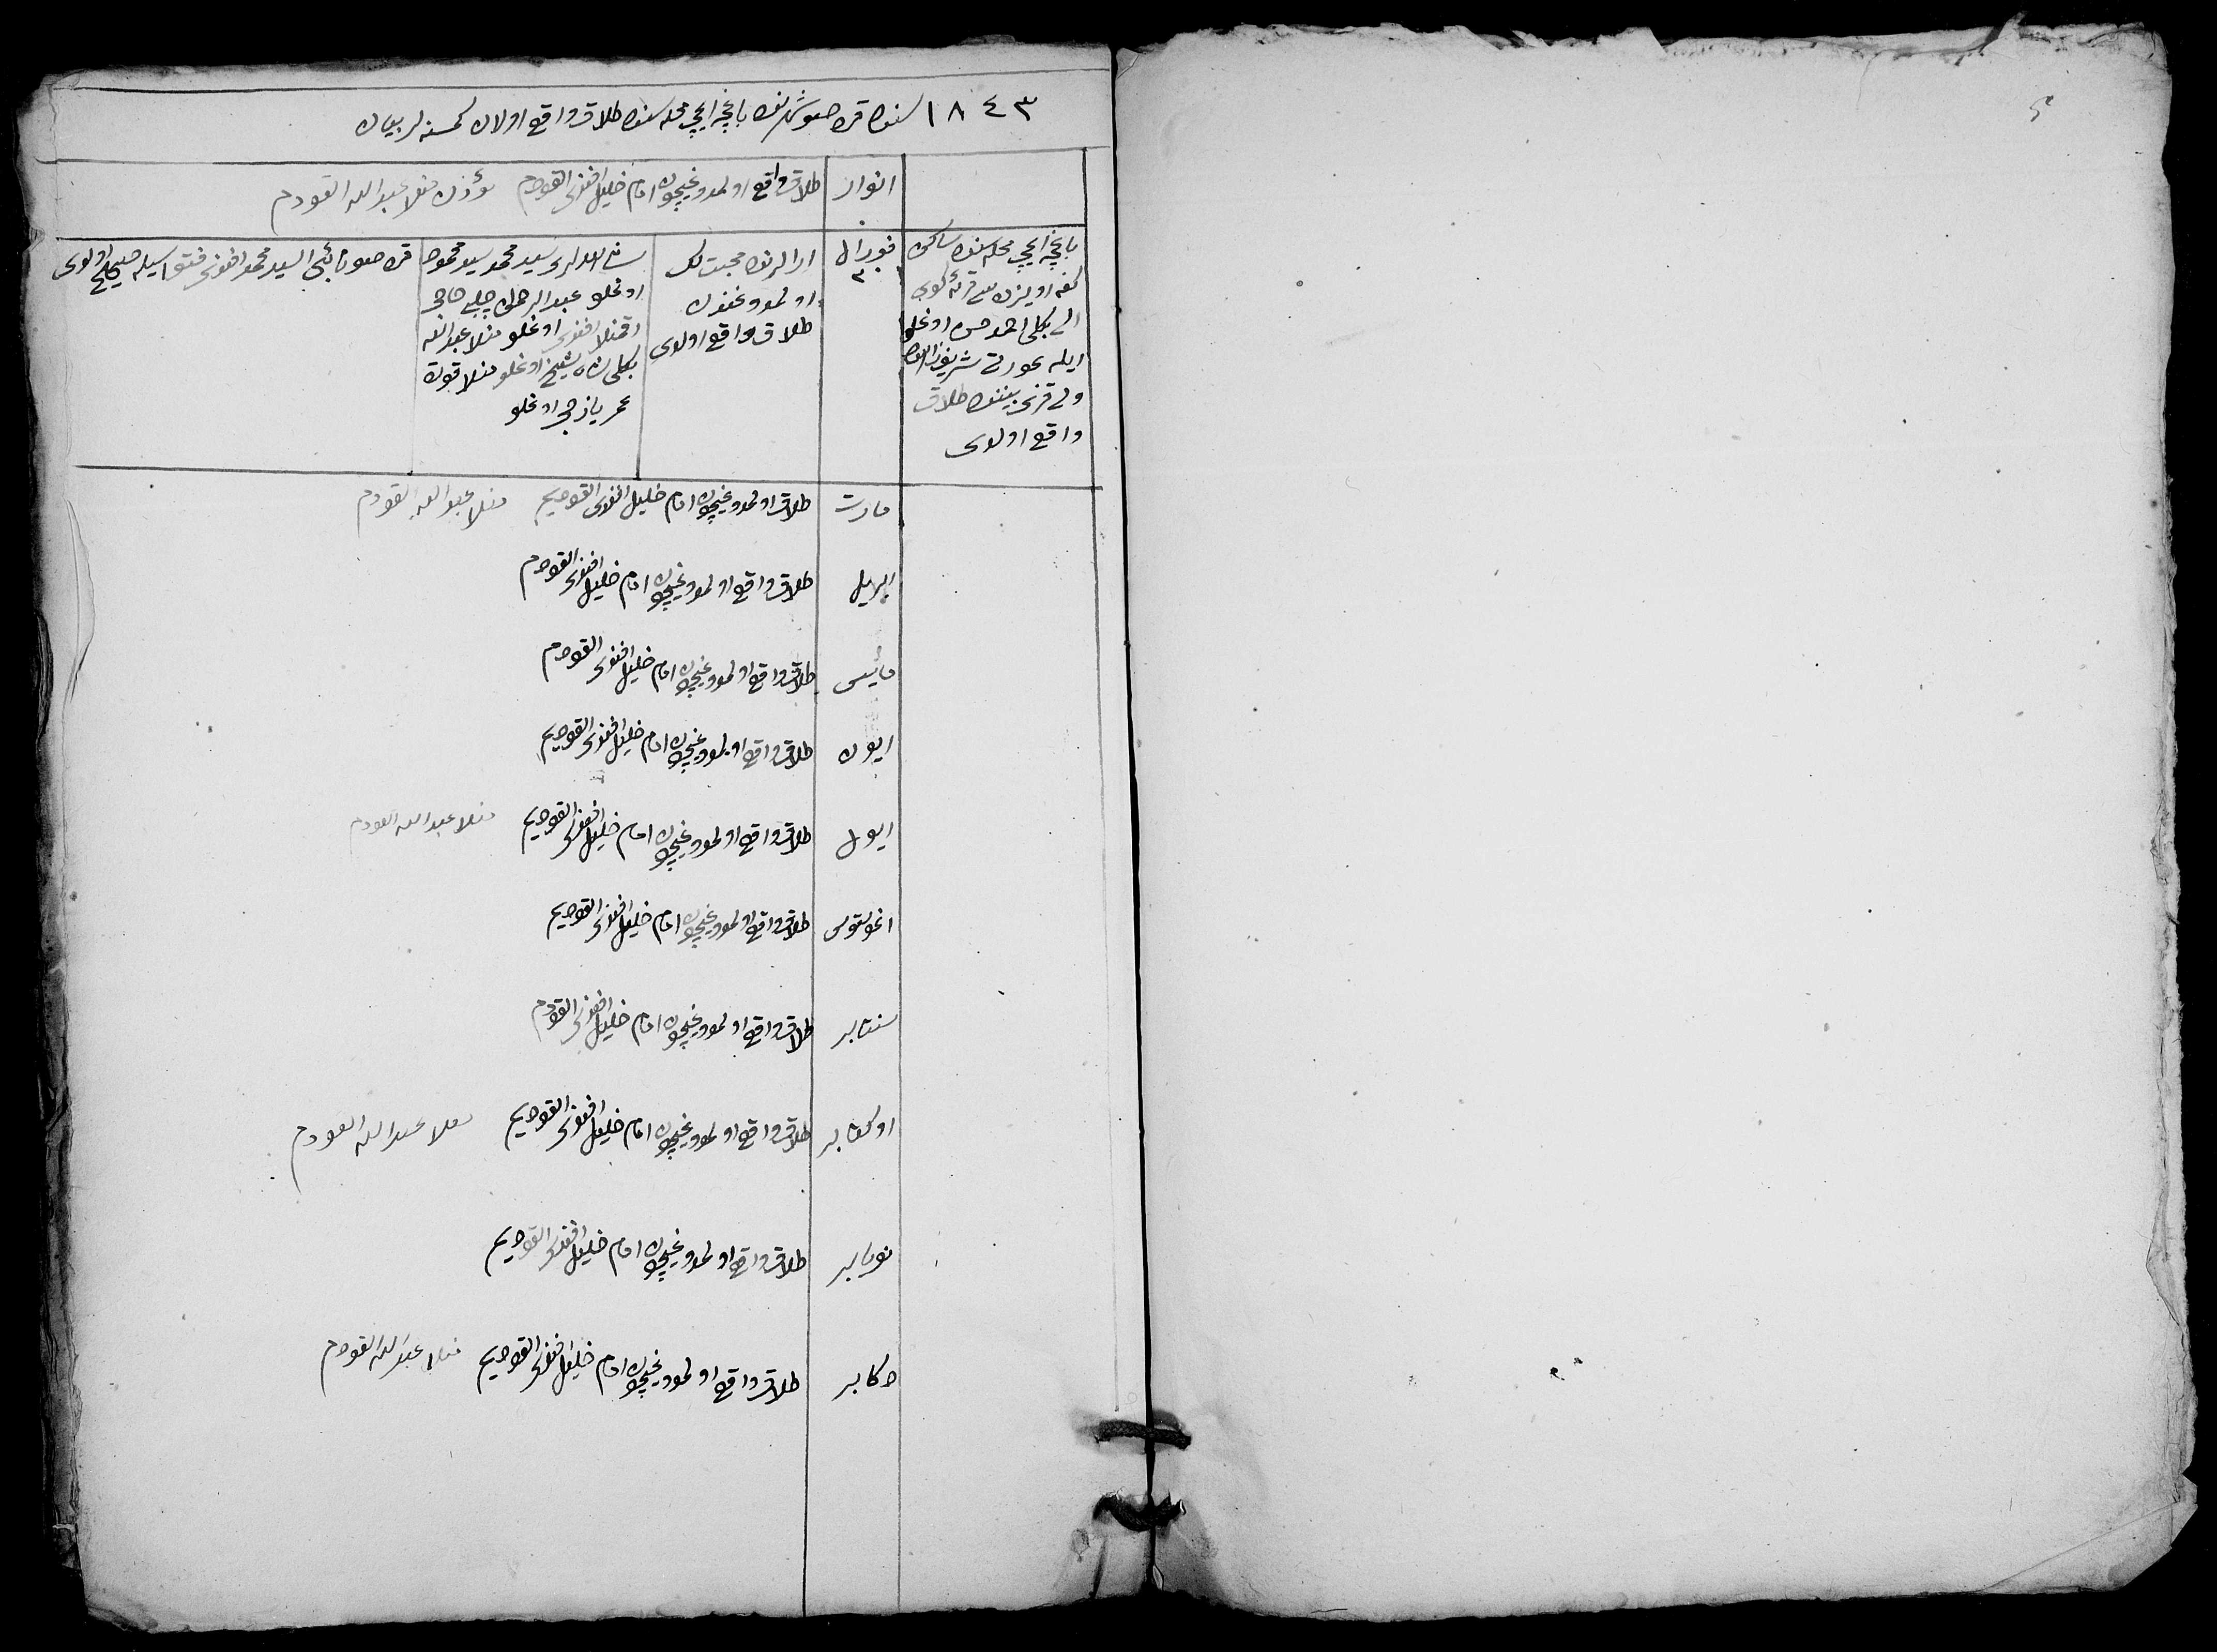 ١٨٤٣ سنه‌ده قره صو شهرنده باغچه ایچی محله‌سنده طلاق واقع اولان کمسنه‌لر بیان
انوار طلاق واقع اولمدوغیچون امام خلیل افندی القودم مؤذن منلا عبدالله القودم
باغچه ایچی محله‌سنده ساکن
احمد حسن اوغلو
ایله عورتی
بیننده طلاق
واقع اولدی
فورال
٣
ارالرنده محبت لک
اولمدوغندن
طلاق واقع اولدی
شاهدلری سید محمد سید محمود
اوغلو عبدالرحمن چلبی حاجی
افندی اوغلو منلا عبدالله
شیخ اوغلو منلا
عمر یازجی اوغلو
قره صو نائبی السید محمد افندی فتواسیله صحیح اولدی
مارت طلاق اولمدوغیچون امام خلیل افندی القودیم منلا عبدالله القودم
اپریل طلاق واقع اولمدوغیچون امام خلیل افندی القودم
مائیس طلاق واقع اولمدوغیچون امام خلیل افندی القودم
ایون طلاق واقع اولمدوغیچون امام خلیل افندی القودیم
ایول طلاق واقع اولمدوغیچون امام خلیل افندی القودیم منلا عبدالله القودم
اغوستوس طلاق واقع اولمدوغیچون امام خلیل افندی القودیم
سنتابر طلاق واقع اولمدوغیچون امام خلیل افندی القودم
اوکتابر طلاق واقع اولمدوغیچون امام خلیل افندی القودیم منلا عبدالله القودم
نویابر طلاق واقع اولمدوغیچون امام خلیل افندی القودیم
دکابر طلاق واقع اولمدوغیچون امام خلیل افندی القودیم منلا عبدالله القودم